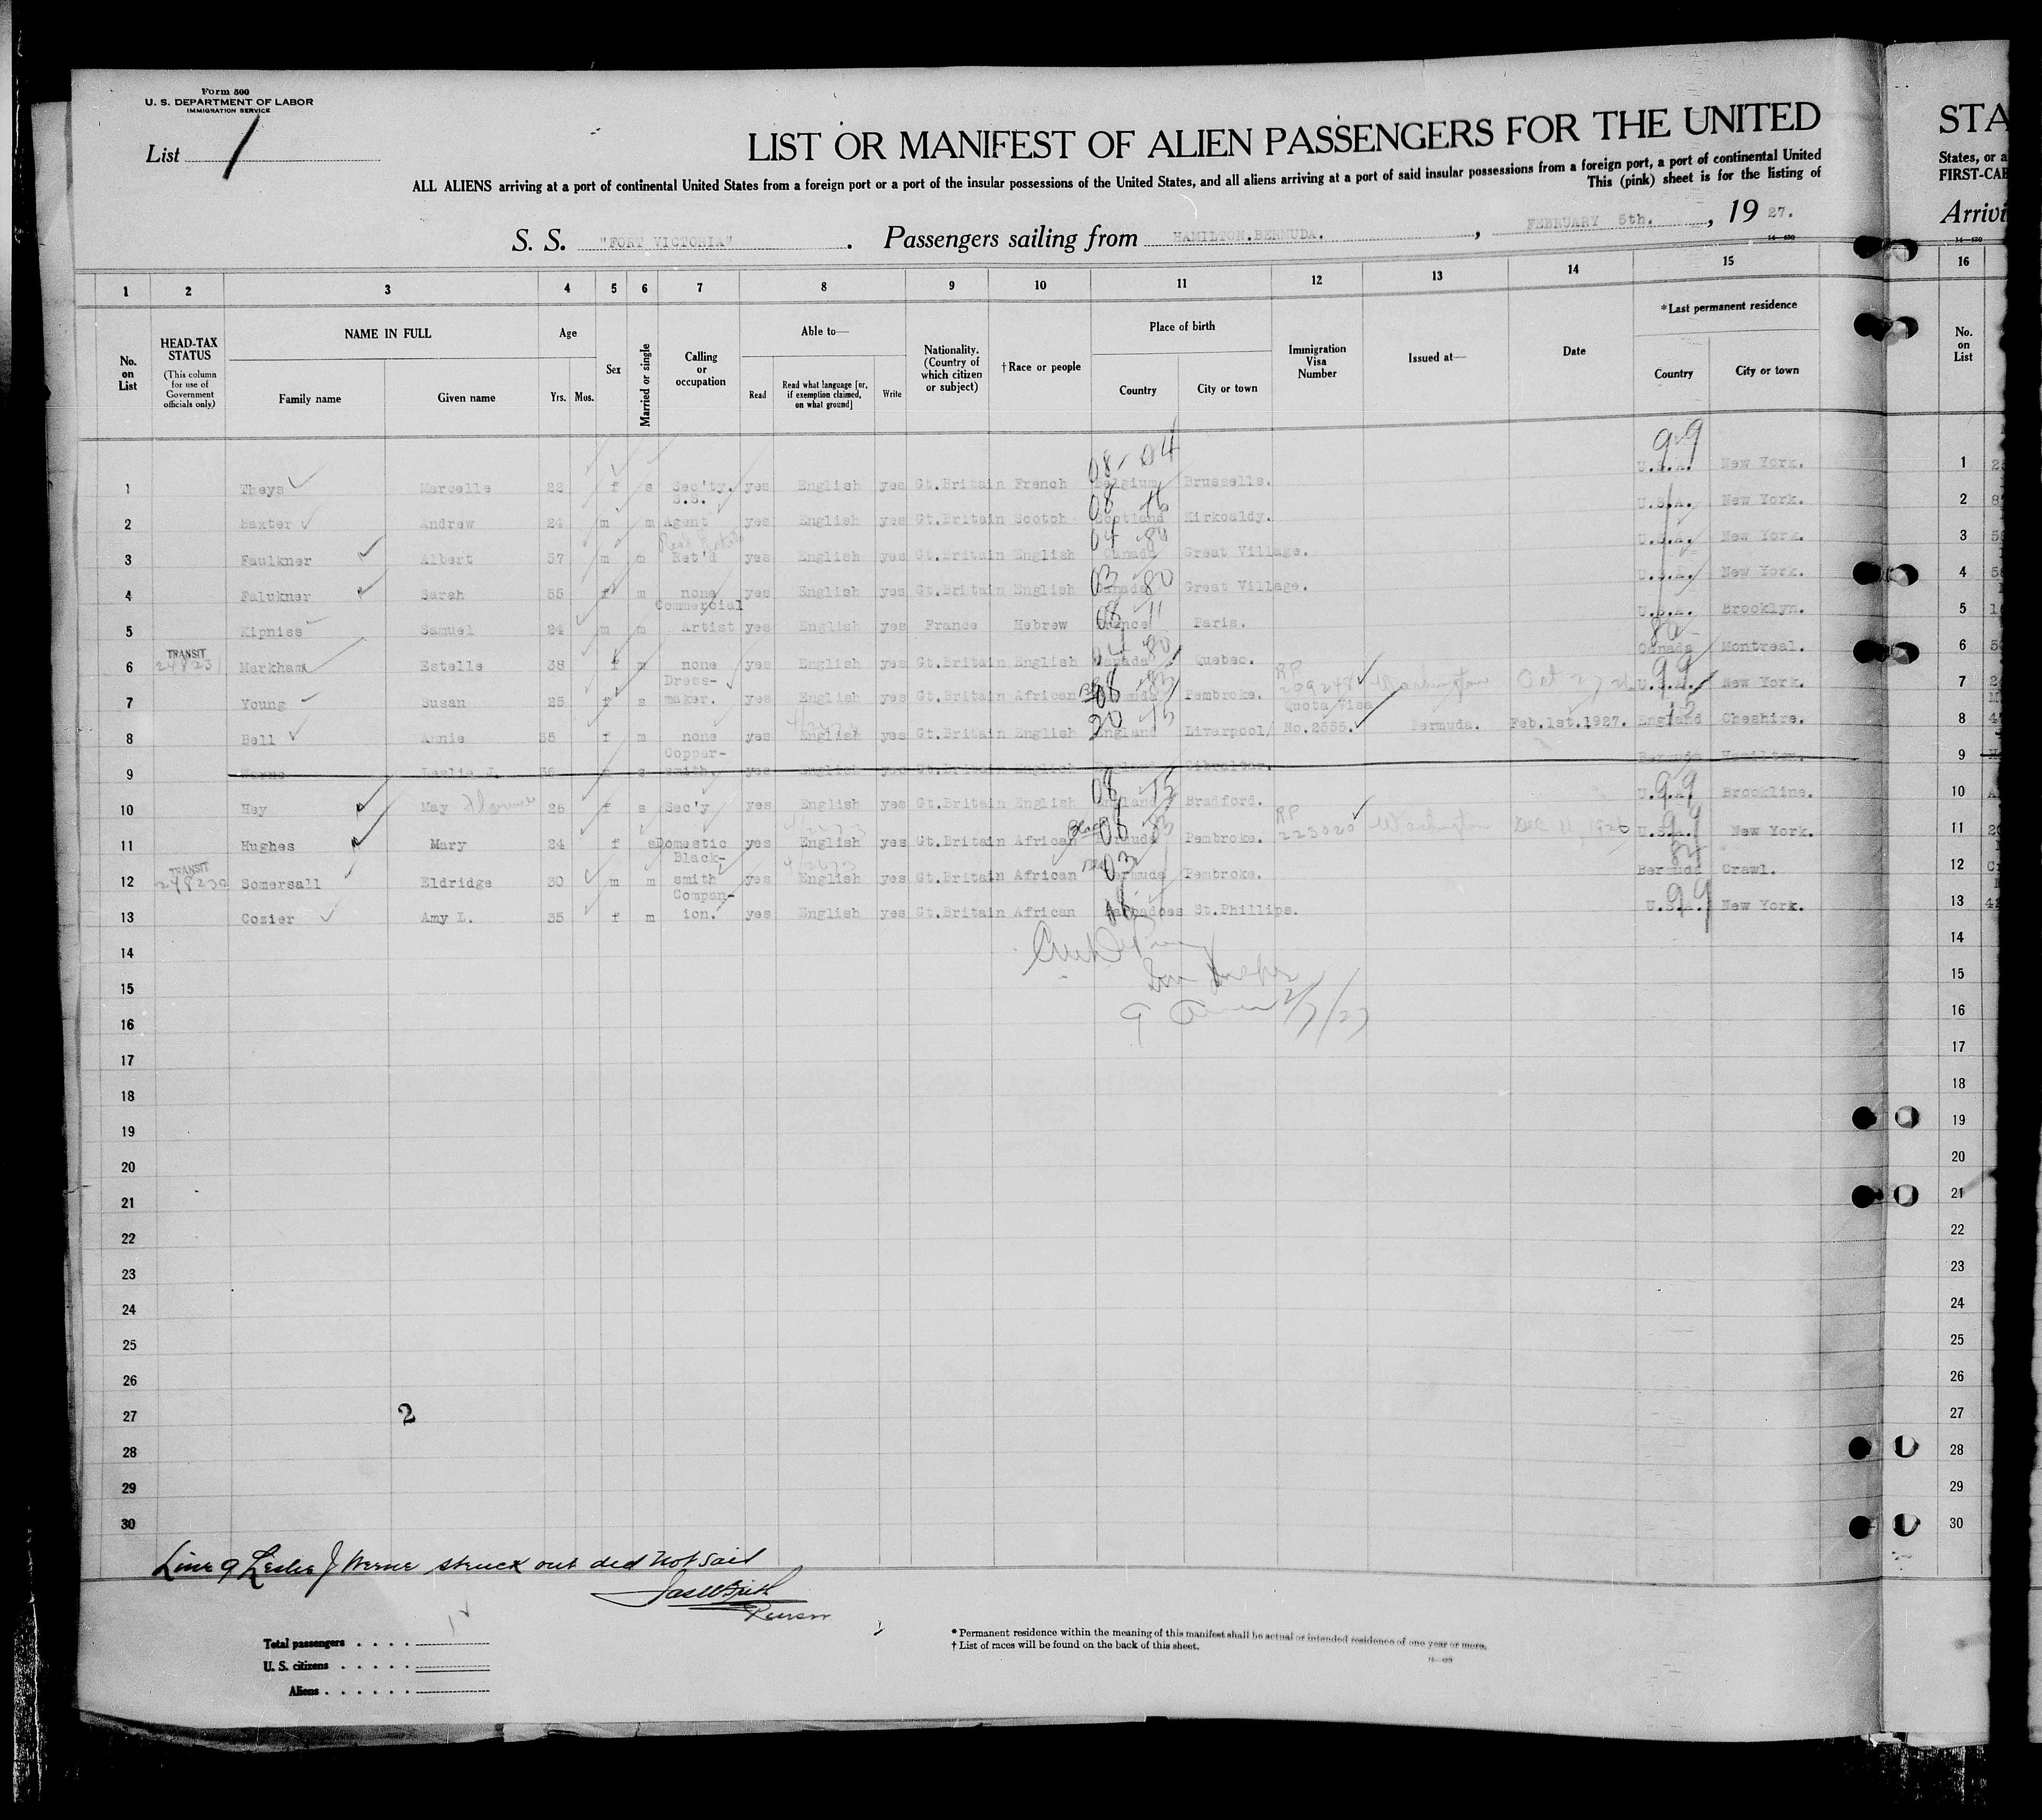 Form 500
U. S. DEPARTMENT OF LABOR
IMMIGRATION SERVICE
List 1
LIST OR MANIFEST OF ALIEN PASSENGERS FOR THE UNITED
ALL ALIENS arriving at a port of continental United States from a foreign port or a port of the insular possessions of the United States, and all aliens arriving at a port of said insular possessions from a foreign port, a port of continental United
This (pink) sheet is for the listing of
S. S. "FORT VICTORIA". Passengers sailing from HAMILTON.BERMUDA., FEBRUARY 5th., 19 27.
STA
States, or a
FIRST-CAB
Arrivi
1 2 3 4 5 6 7 8 9 10 11 12 13 14 15 16
No. on List
HEAD-TAX STATUS (This column for use of Government officials only)
NAME IN FULL
Family name Given name
Age
Yrs. Mos.
Sex
Married or single
Calling or occupation
Able to—
Read
Read what language [or, if exemption claimed, on what ground]
Write
Nationality. (Country of which citizen or subject)
†Race or people
Place of birth
Country City or town
Immigration Visa Number
Issued at—
Date
*Last permanent residence
Country City or town
No. on List
1 Theys Marcelle 22 f s Sec'ty. yes English yes Gt.Britain French Belgium Brussells. 08-04 U.S.A. 99 New York. 1
2 Baxter Andrew 24 m m S.S. Agent yes English yes Gt.Britain Scotch Scotland Kirkcaldy. U.S.A. New York. 2
3 Faulkner Albert 57 m m Ret'd yes English yes Gt.Britain English Canada Great Village. 04 80 U.S.A. New York. 3
4 Falukner Sarah 55 f m none yes English yes Gt.Britain English Canada Great Village. 03 80 U.S.A. New York. 4
5 Kipniss Samuel 24 m m Commercial Artist yes English yes France Hebrew France Paris. 08 11 U.S.A. Brooklyn. 5
6 TRANSIT 248231 Markham Estelle 38 f m none yes English yes Gt.Britain English Canada Quebec. 04 80 Canada Montreal. 6
7 Young Susan 25 f s Dress-maker. yes English yes Gt.Britain African Pembroke. RP 209248 Washington Oct 27 26 U.S.A. 99 New York. 7
8 Bell Annie 35 f m none yes English yes Gt.Britain English England Liverpool Quota Visa No.2555. Bermuda. Feb.1st.1927. England Cheshire. 8
9 Werne Leslie J. s Copper-smith. yes English yes Gt.Britain English Gibraltar. Bermuda Hamilton. 9
10 Hey May Florence 26 f s Sec'y yes English yes Gt.Britain English England Bradford. 08 15 U.S.A. 99 Brookline. 10
11 Hughes Mary 24 f s Domestic yes English yes Gt.Britain African Black Bermuda Pembroke. RP 223020 Washington Dec 11, 1926 U.S.A. New York. 11
12 TRANSIT 248230 Somersall Eldridge 30 m m Black-smith yes English yes Gt.Britain African Bermuda Pembroke. 03 Bermuda Crawl. 12
13 Cozier Amy L. 35 f m Compan-ion. yes English yes Gt.Britain African Barbadoes St.Phillips. U.S.A. 99 New York. 13
14 14
15 15
2/7/27
16 16
17 17
18 18
19 19
20 20
21 21
22 22
23 23
24 24
25 25
26 26
27 2 27
28 28
29 29
30 30
Line 9 Leslie J Werne struck out did not sail
Purser
Total passengers . . . . 12
U. S. citizens . . . . .
Aliens . . . . . .
* Permanent residence within the meaning of this manifest shall be actual or intended residence of one year or more.
† List of races will be found on the back of this sheet.